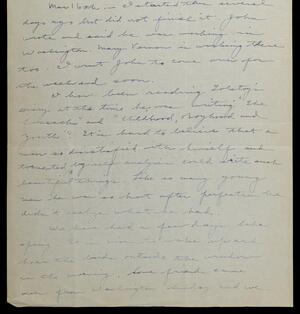 Mar 16th. - I started this several
days ago but did not finish it. John
wrote and said he was working in
Washington. Mary Vernon is working there
too. I want John to come over for
the weekend soon.
I have been reading Tolstoy's
diary at the time he was writing "The
Cossacks" and "Childhood, Boyhood and
Youth". It is hard to believe that a
man so dissatisfied with himself and
tormented by self analysis could write such
beautiful things. Like so many young
men he was so hot after perfection he
didn't realize what he had.
We have had a few days like
spring. wake up and
hear the birds outside the window
in the morning. came
over from Washington Sunday and we